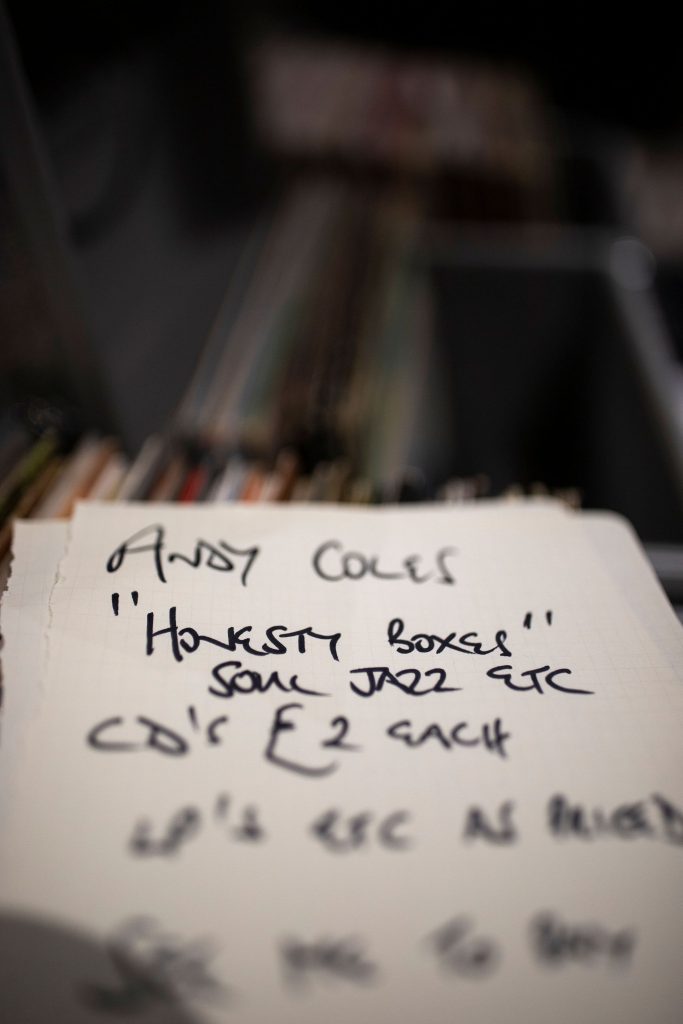 ANDY COLES
"HONESTY BOXES"
SOUL JAZZ ETC
CD's £2 EACH
LP's ETC AS PRICED
SEE ME TO BUY